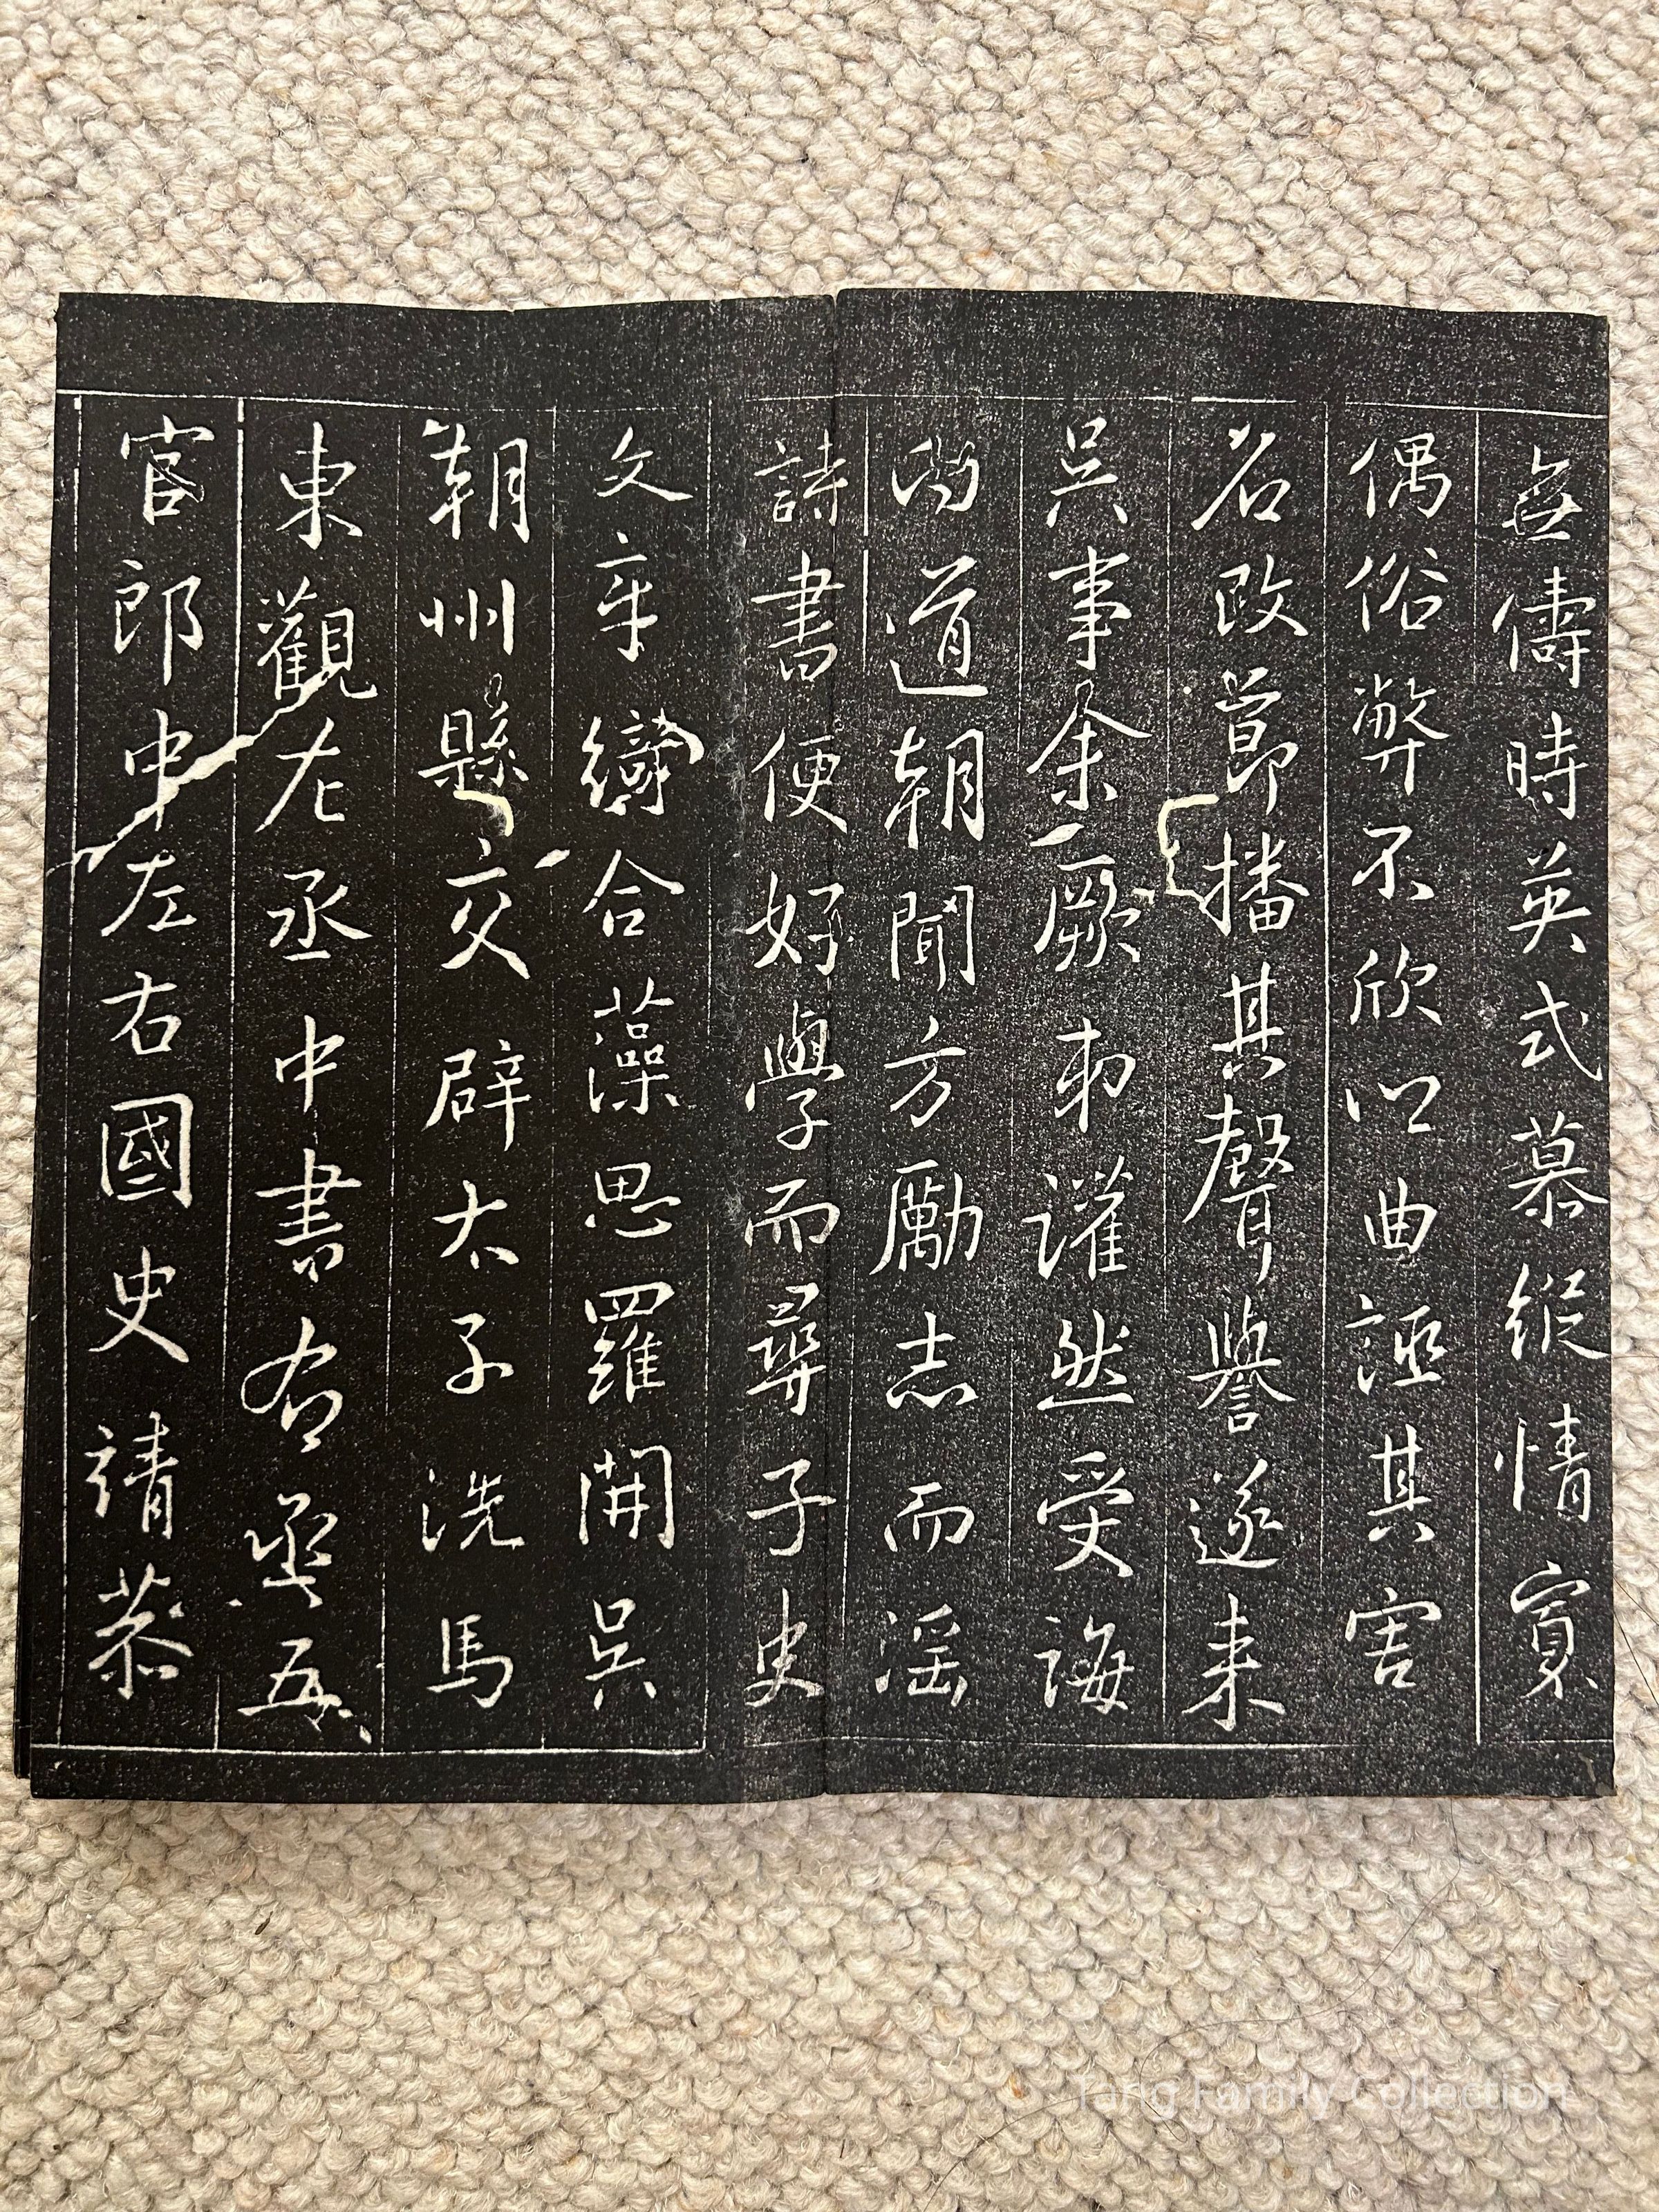 無儔時英式慕縱情實
偶俗弊不欣以曲誣其害
名改節播其聲譽遂来
吳事余厥弟讙然受誨
尚道朝聞方勵志而滛
詩書便好學而尋子史
文章綺合藻思羅開吳
朝州縣交辟太子洗馬
東觀左丞中書右丞五
官郎中左右國史靖恭
Tang Family Collection